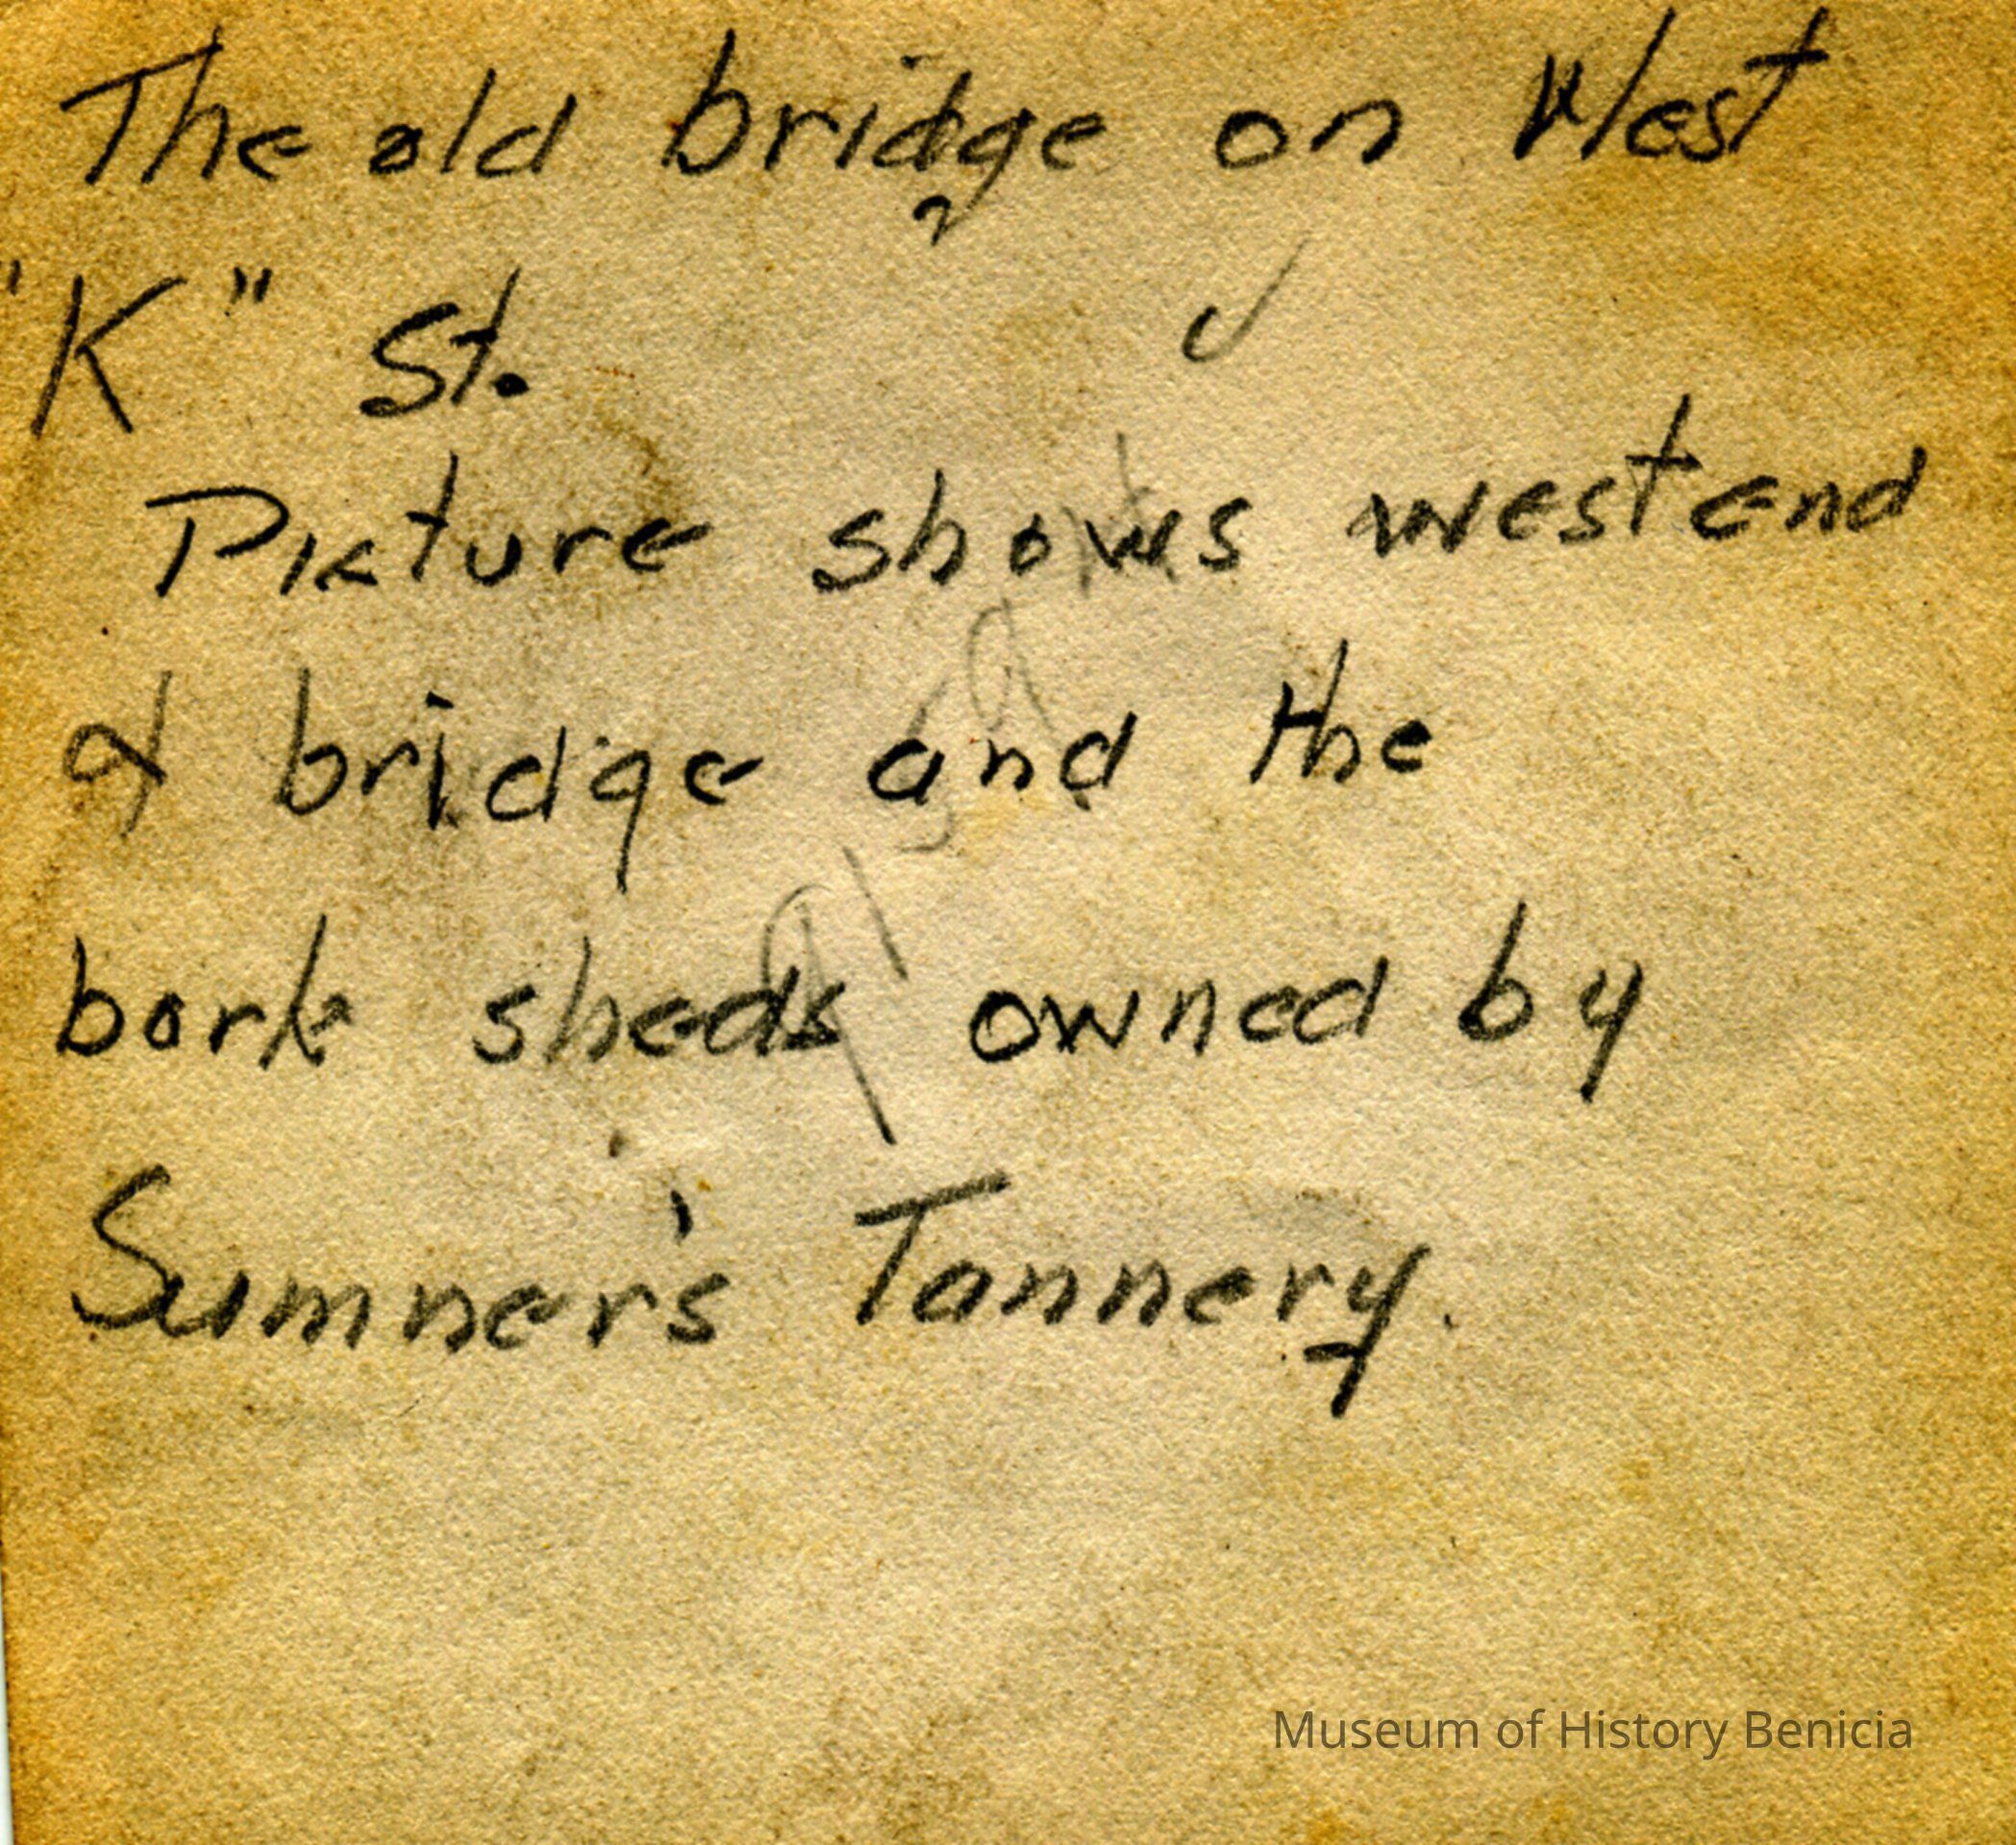 The old bridge on West
"K" St.
Picture shows west end
of bridge and the
bark sheds owned by
Sumner's Tannery.
Museum of History Benicia